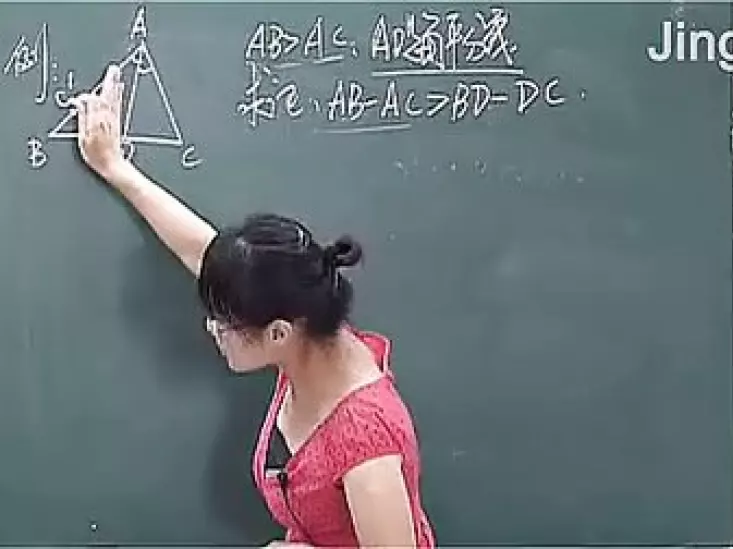 例:
AB>AC, AD是角平分线.
求证: AB-AC>BD-DC.
A
B
D
C
Jing